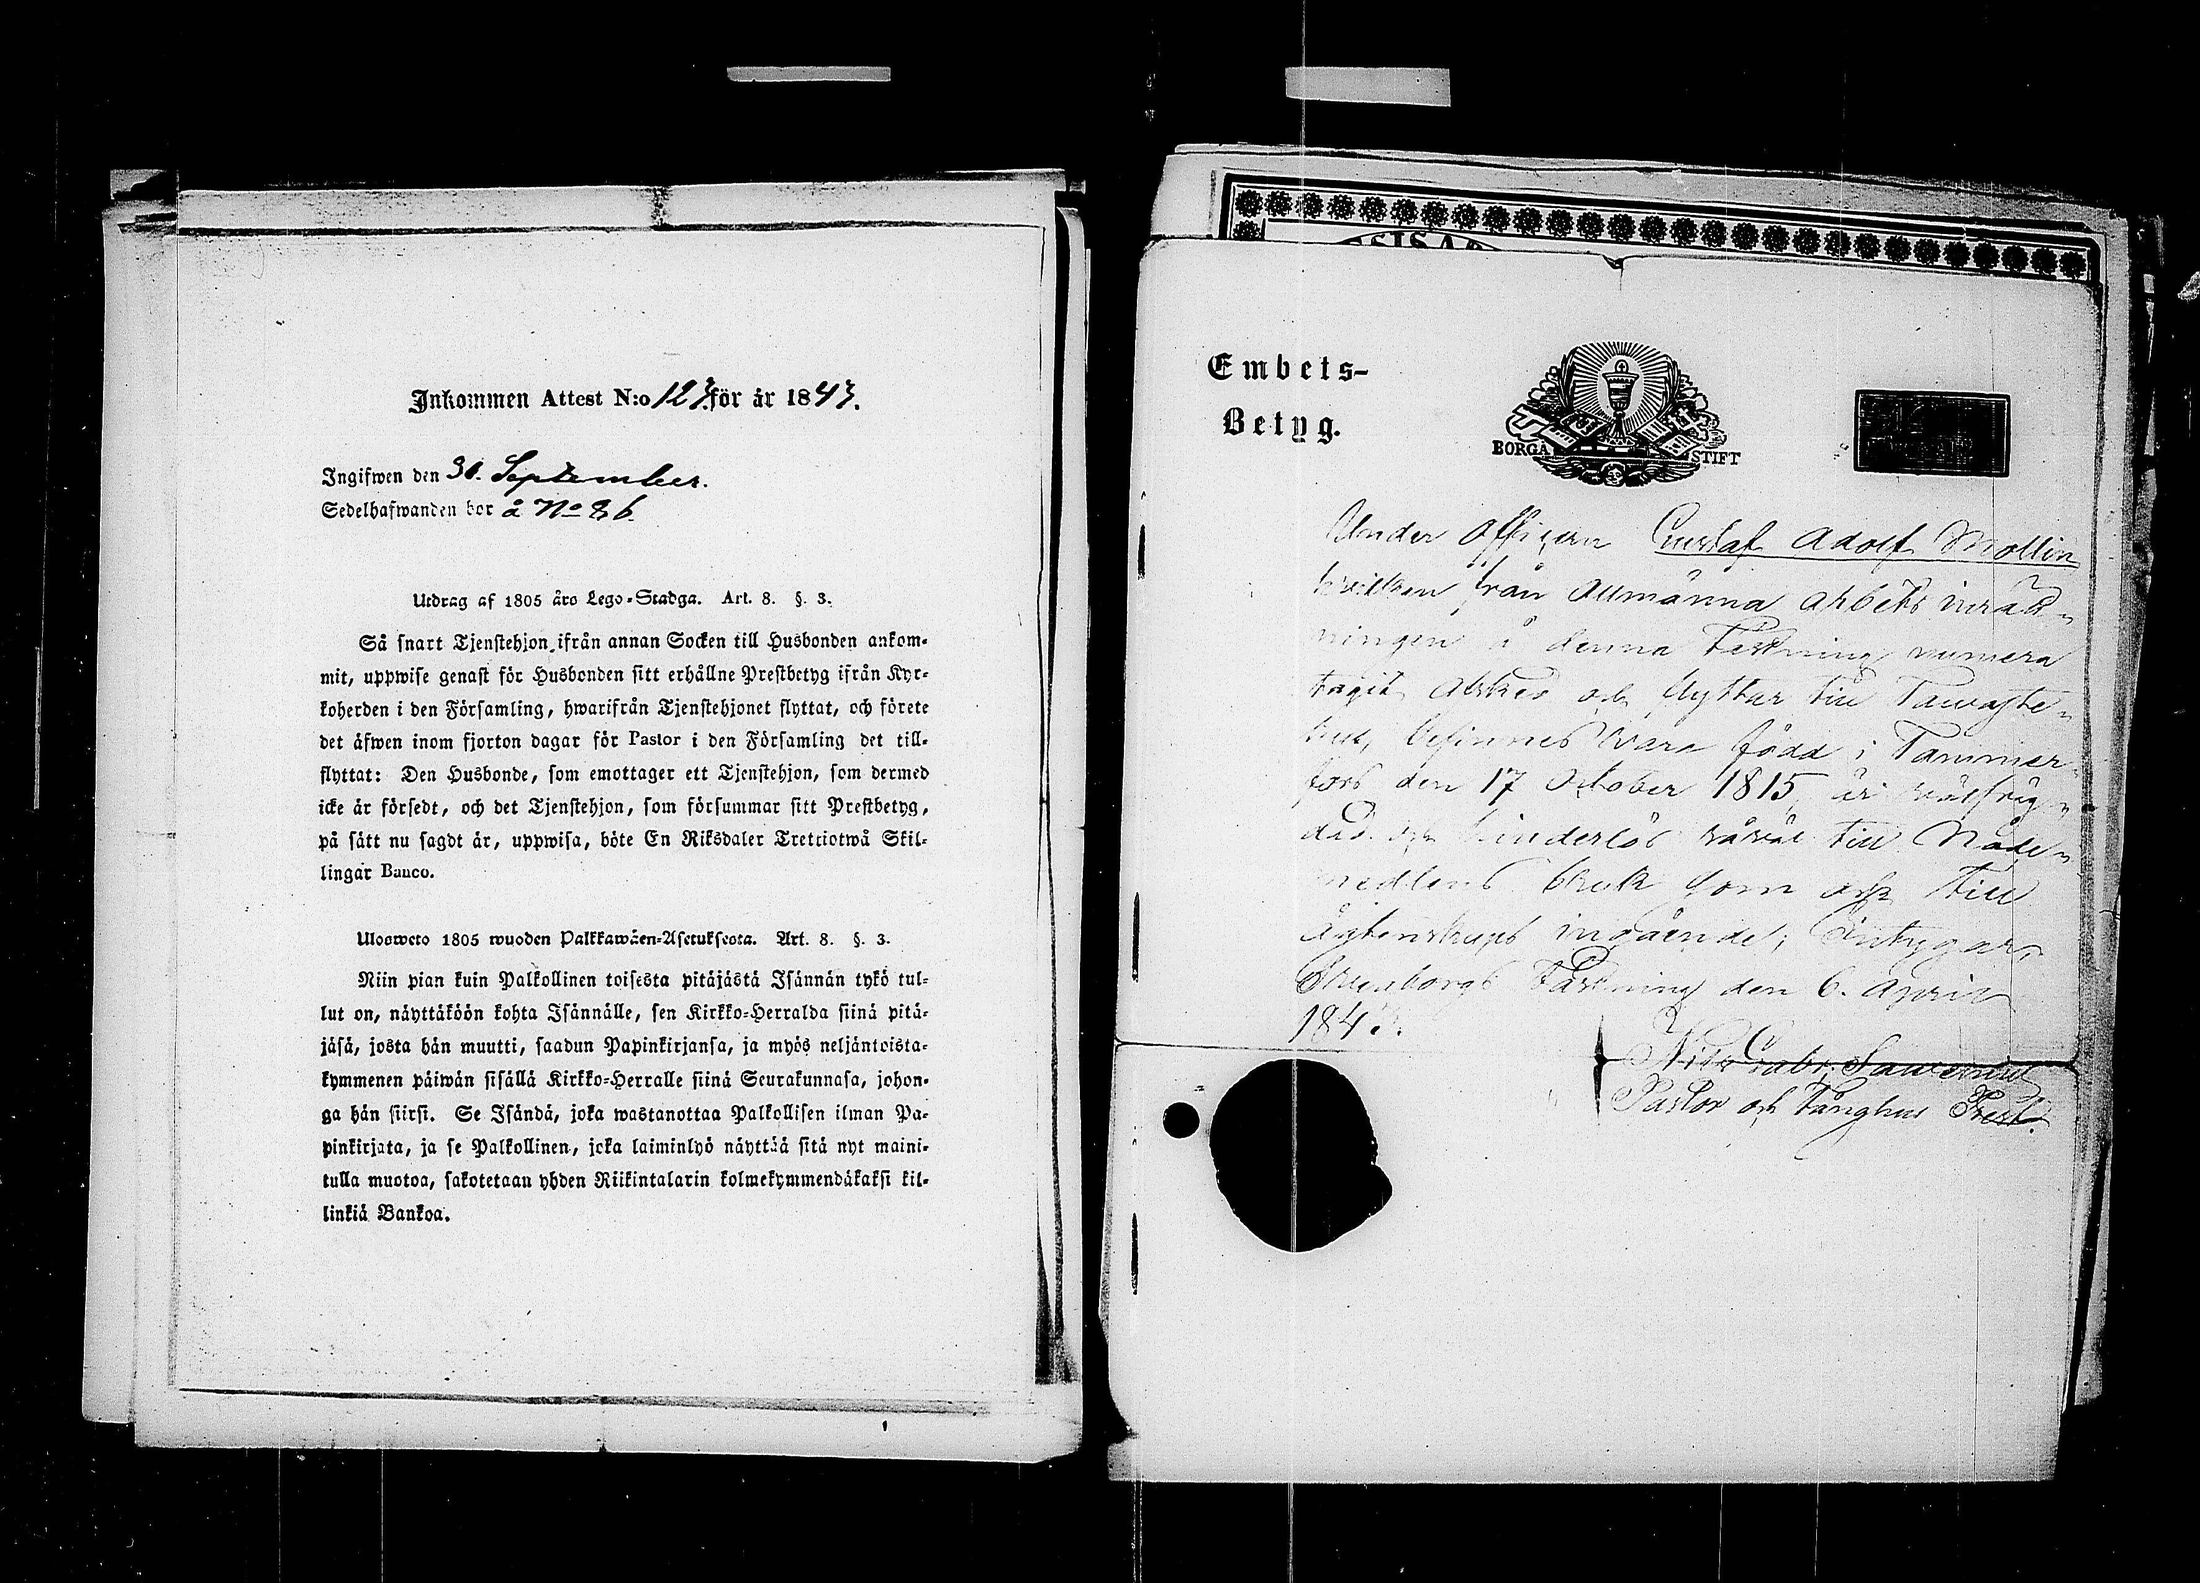 Inkommen Attest N:o 123. för år 1843.
Ingifwen den 30. September.
Sedelhafwanden bor å No 86.
Utdrag af 1805 års Lego-Stadga. Art. 8. §. 3.
Så snart Tjenstehjon ifrån annan Socken till Husbonden ankom-
mit, uppwise genast för Husbonden sitt erhållne Prestbetyg ifrån Kyr-
koherden i den Församling, hwarifrån Tjenstehjonet flyttat, och förete
det äfwen inom fjorton dagar för Pastor i den Församling det till-
flyttat: Den Husbonde, som emottager ett Tjenstehjon, som dermed
icke är försedt, och det Tjenstehjon, som försummar sitt Prestbetyg,
på sätt nu sagdt är, uppwisa, böte En Riksdaler Trettiotwå Skil-
lingar Banco.
Ulosweto 1805 wuoden Palkkawäen-Asetuksesta. Art. 8. §. 3.
Niin pian kuin Palkollinen toisesta pitäjästä Isännän tykö tul-
lut on, näyttäköön kohta Isännälle, sen Kirkko-Herralda siinä pitä-
jäsä, josta hän muutti, saadun Papinkirjansa, ja myös neljäntoista-
kymmenen päiwän sisällä Kirkko-Herralle siinä Seurakunnasa, johon-
ga hän siirsi. Se Isändä, joka wastanottaa Palkollisen ilman Pa-
pinkirjata, ja se Palkollinen, joka laiminlyö näyttää sitä nyt maini-
tulla muotoa, sakotetaan yhden Riikintalarin kolmekymmendäkaksi kil-
linkiä Bankoa.
Embets-
Betyg.
BORGÅ STIFT
Under Officern Gustaf Adolf Mollin
hvilken från Allmänna Arbets inrätt-
ningen å denna Fästning numera
tagit afsked och flyttar till Tawaste-
hus, befinnes vara född i Tammer-
fors den 17 October 1815, är wälfräg-
dad och hinderlös såväl till Nåde-
medlens bruk som ock till
Ägtenskaps ingående; Intygar,
Sveaborgs Fästning den 6. April
1843.
Nils Gabr.
Pastor och Fånghus Pred.